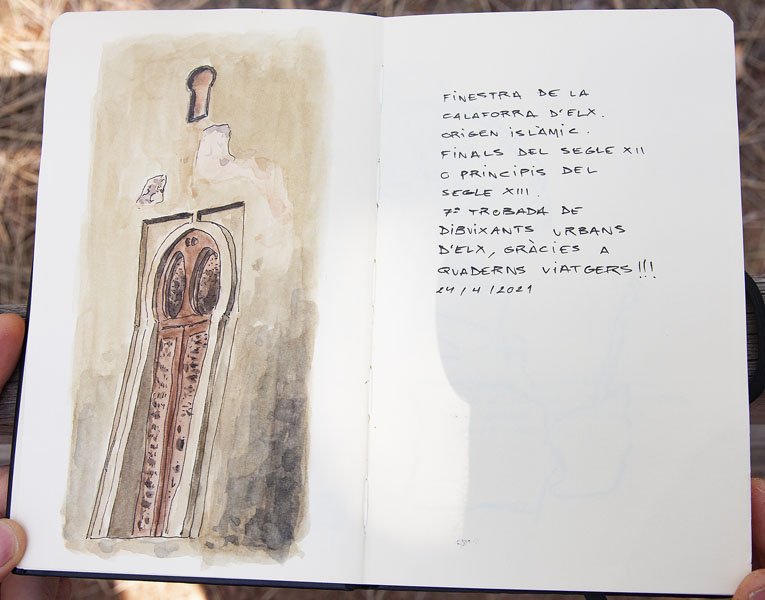 FINESTRA DE LA
CALAFORRA D'ELX.
ORIGEN ISLÀMIC.
FINALS DEL SEGLE XII
O PRINCIPIS DEL
SEGLE XIII.
7ª TROBADA DE
DIBUIXANTS URBANS
D'ELX, GRÀCIES A
QUADERNS VIATGERS!!!
24/4/2021